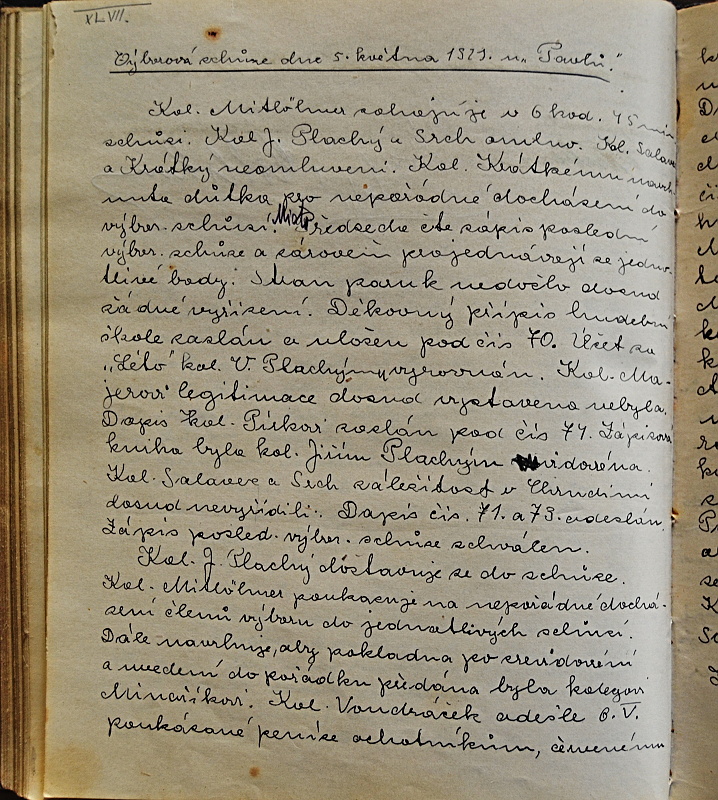 XLVII.
Výborová schůze dne 5. května 1929. u „Pavlů."
Kol. Mitlöhner zahajuje v 6 hod. 45 min
schůzi. Kol J. Plachý a Srch omluv. Kol. Salavec
a Krátký neomluveni. Kol. Krátkému navrh-
nuta důtka pro nepořádné docházení do
výbor. schůzí. Místopředseda čte zápis poslední
výbor. schůze a zároveň projednávají se jedno-
tlivé body. Stran paruk nedošlo dosud
žádné vyřízení. Děkovný přípis hudební
škole zaslán a uložen pod čís 70. Účet za
„Léto" kol. V. Plachým vyrovnán. Kol. Ma-
jerovi legitimace dosud vystavena nebyla.
Dopis kol. Pírkovi zaslán pod čís 74. Zápisová
kniha byla kol. Jiřím Plachým vidována.
Kol. Salavec a Srch záležitost v Chrudimi
dosud nevyřídili. Dopis čís. 71. a 73. odeslán.
Zápis posled. výbor. schůze schválen.
Kol. J. Plachý dostavuje se do schůze.
Kol. Mitlöhner poukazuje na nepořádné dochá-
zení členů výboru do jednotlivých schůzí.
Dále navrhuje, aby pokladna po zrevidování
a uvedení do pořádku předána byla kolegovi
Minaříkovi. Kol. Vondráček odešle 6. V.
poukázané peníze ochotníkům,